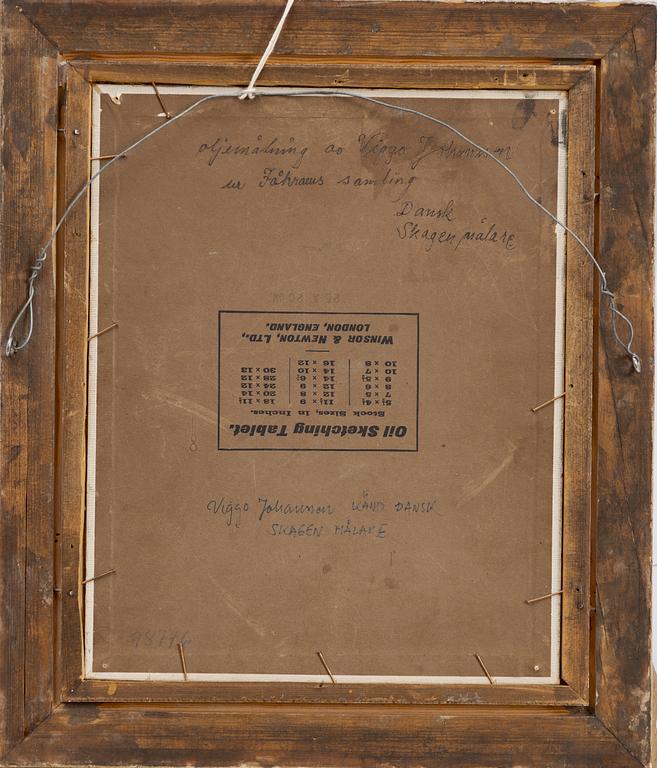 oljemålning av Viggo Johansen
ur Fåhraeus samling
Dansk
Skagen målare
Oil Sketching Tablet.
Stock Sizes, in Inches.
5½ × 4½ 11½ × 9 18 × 11½
7 × 5 12 × 8 20 × 14
8 × 6 12 × 9 24 × 12
9 × 5½ 14 × 6½ 28 × 12
10 × 7 14 × 10 30 × 13
10 × 8 16 × 12
WINSOR & NEWTON, LTD.,
LONDON, ENGLAND.
Viggo Johannson KÄND DANSK
SKAGEN MÅLARE